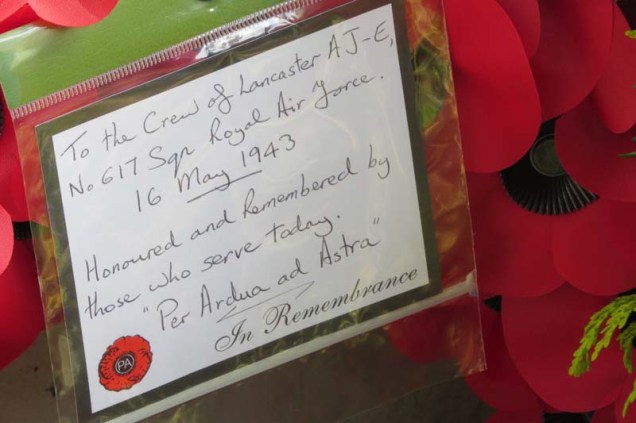 To the Crew of Lancaster AJ-E,
No 617 Sqn Royal Air Force.
16 May 1943
Honoured and Remembered by
those who serve today.
"Per Ardua ad Astra"
In Remembrance
PA